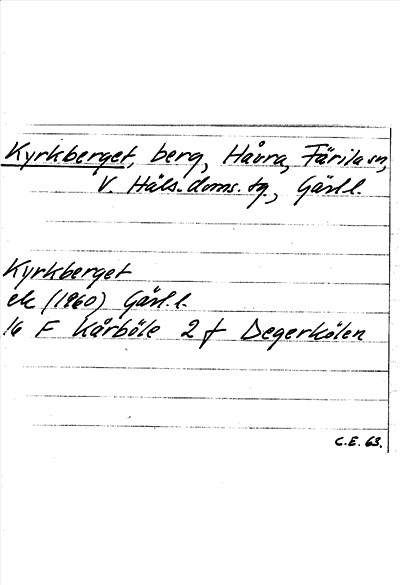 Kyrkberget, berg, Håvra, Färila sn,
V. Häls. doms. tg., Gävl. l.
Kyrkberget
ek (1960) Gävl. l.
16 F Kårböle 2 f Degerkölen
C.E. 63.